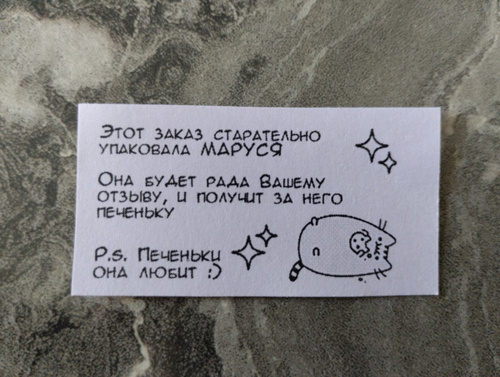 Этот заказ старательно
упаковала МАРУСЯ
Она будет рада Вашему
отзыву, и получит за него
печеньку
P.s. Печеньки
она любит :)